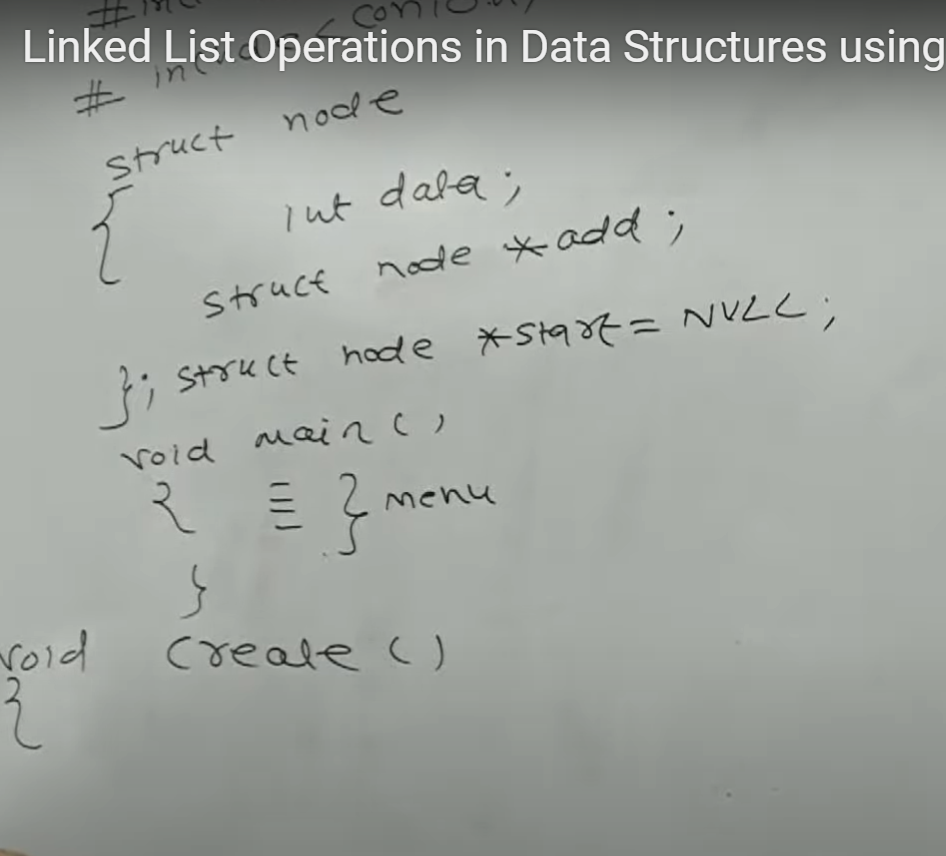 Linked List Operations in Data Structures using
#
struct node
{ int data;
struct node *add;
}; struct node *start = NULL;
void main()
{ } menu
}
void create()
{